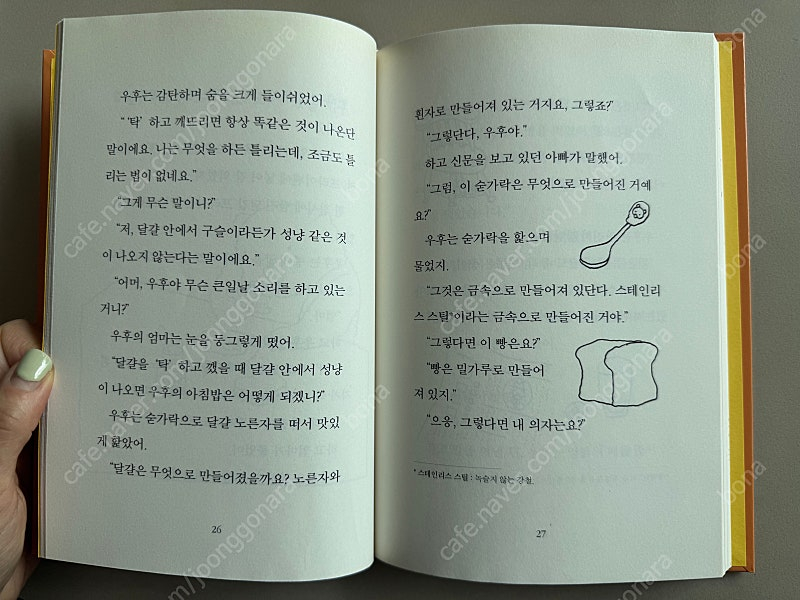 우후는 감탄하며 숨을 크게 들이쉬었어.
“‘탁’ 하고 깨뜨리면 항상 똑같은 것이 나온단
말이에요. 나는 무엇을 하든 틀리는데, 조금도 틀
리는 법이 없네요.”
“그게 무슨 말이니?”
“저, 달걀 안에서 구슬이라든가 성냥 같은 것
이 나오지 않는다는 말이에요.”
“어머, 우후야 무슨 큰일날 소리를 하고 있는
거니?”
우후의 엄마는 눈을 둥그렇게 떴어.
“달걀을 ‘탁’ 하고 깼을 때 달걀 안에서 성냥
이 나오면 우후의 아침밥은 어떻게 되겠니?”
우후는 숟가락으로 달걀 노른자를 떠서 맛있
게 핥았어.
“달걀은 무엇으로 만들어졌을까요? 노른자와
26
흰자로 만들어져 있는 거지요, 그렇죠?”
“그렇단다, 우후야.”
하고 신문을 보고 있던 아빠가 말했어.
“그럼, 이 숟가락은 무엇으로 만들어진 거예
요?”
우후는 숟가락을 핥으며
물었지.
“그것은 금속으로 만들어져 있단다. 스테인리
스 스틸*이라는 금속으로 만들어진 거야.”
“그렇다면 이 빵은요?”
“빵은 밀가루로 만들어
져 있지.”
“으응, 그렇다면 내 의자는요?”
* 스테인리스 스틸 : 녹슬지 않는 강철.
27
cafe.naver.com/joonggonara
bona